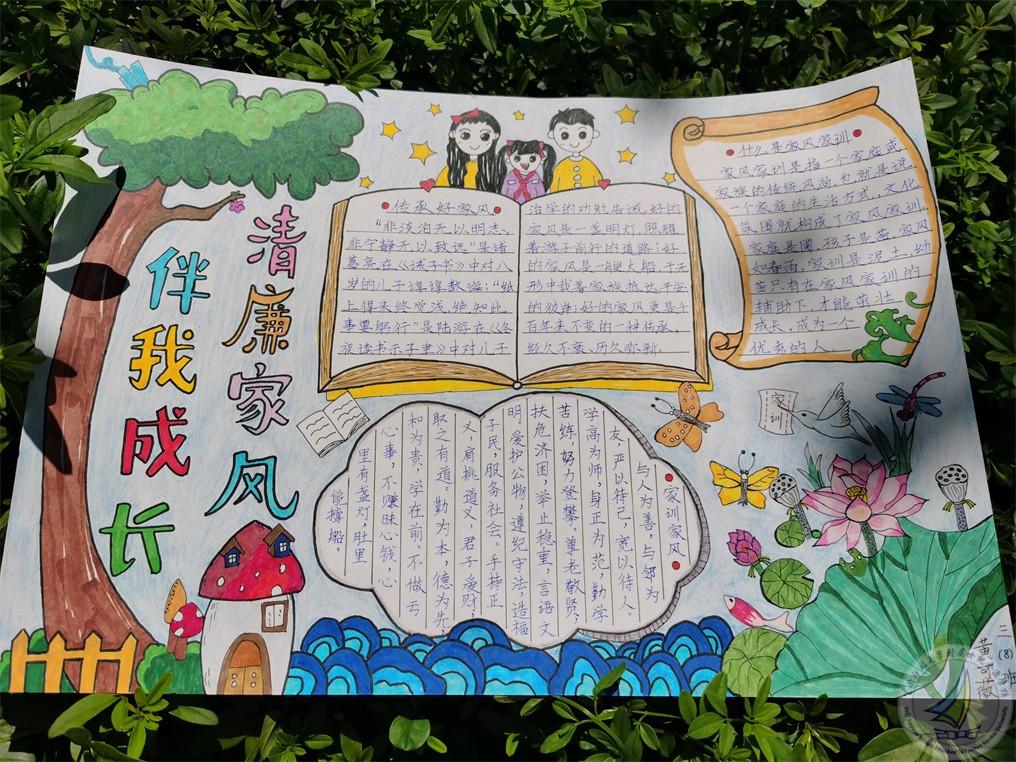 清廉家风
伴我成长
传承好家风
“非淡泊无以明志，
非宁静无以致远”是诸
葛亮在《诫子书》中对八
岁的儿子谆谆教诲；“纸
上得来终觉浅，绝知此
事要躬行”是陆游在《冬
夜读书示子聿》中对儿子
治学的劝勉告诫，好的
家风是一盏明灯，照耀
着游子前行的道路；好
的家风是一艘大船，于无
形中载着家族抵达平安
的彼岸；好的家风更是千
百年来不变的一种传承，
经久不衰、历久弥新。
什么是家风家训
家风家训是指一个家庭或
家族的传统风尚，也就是说
一个家庭的生活方式，文化
氛围就构成了家风家训，
家庭是圃，孩子是苗，家风
如春雨，家训是泥土，幼
苗只有在家风家训的
辅助下，才能茁壮
成长，成为一个
优秀的人
家训
家训家风
与人为善，与邻为
友，严以待己，宽以待人，
学高为师，身正为范，勤学
苦练，努力登攀。尊老敬贤，
扶危济困，举止稳重，言语文
明，爱护公物，遵纪守法，造福
子民，服务社会。手持正
义，肩挑道义，君子爱财，
取之有道。勤为本，德为先，
和为贵，学在前，不做亏
心事，不赚昧心钱，心
里有盏灯，肚里
能撑船。
二(8)班